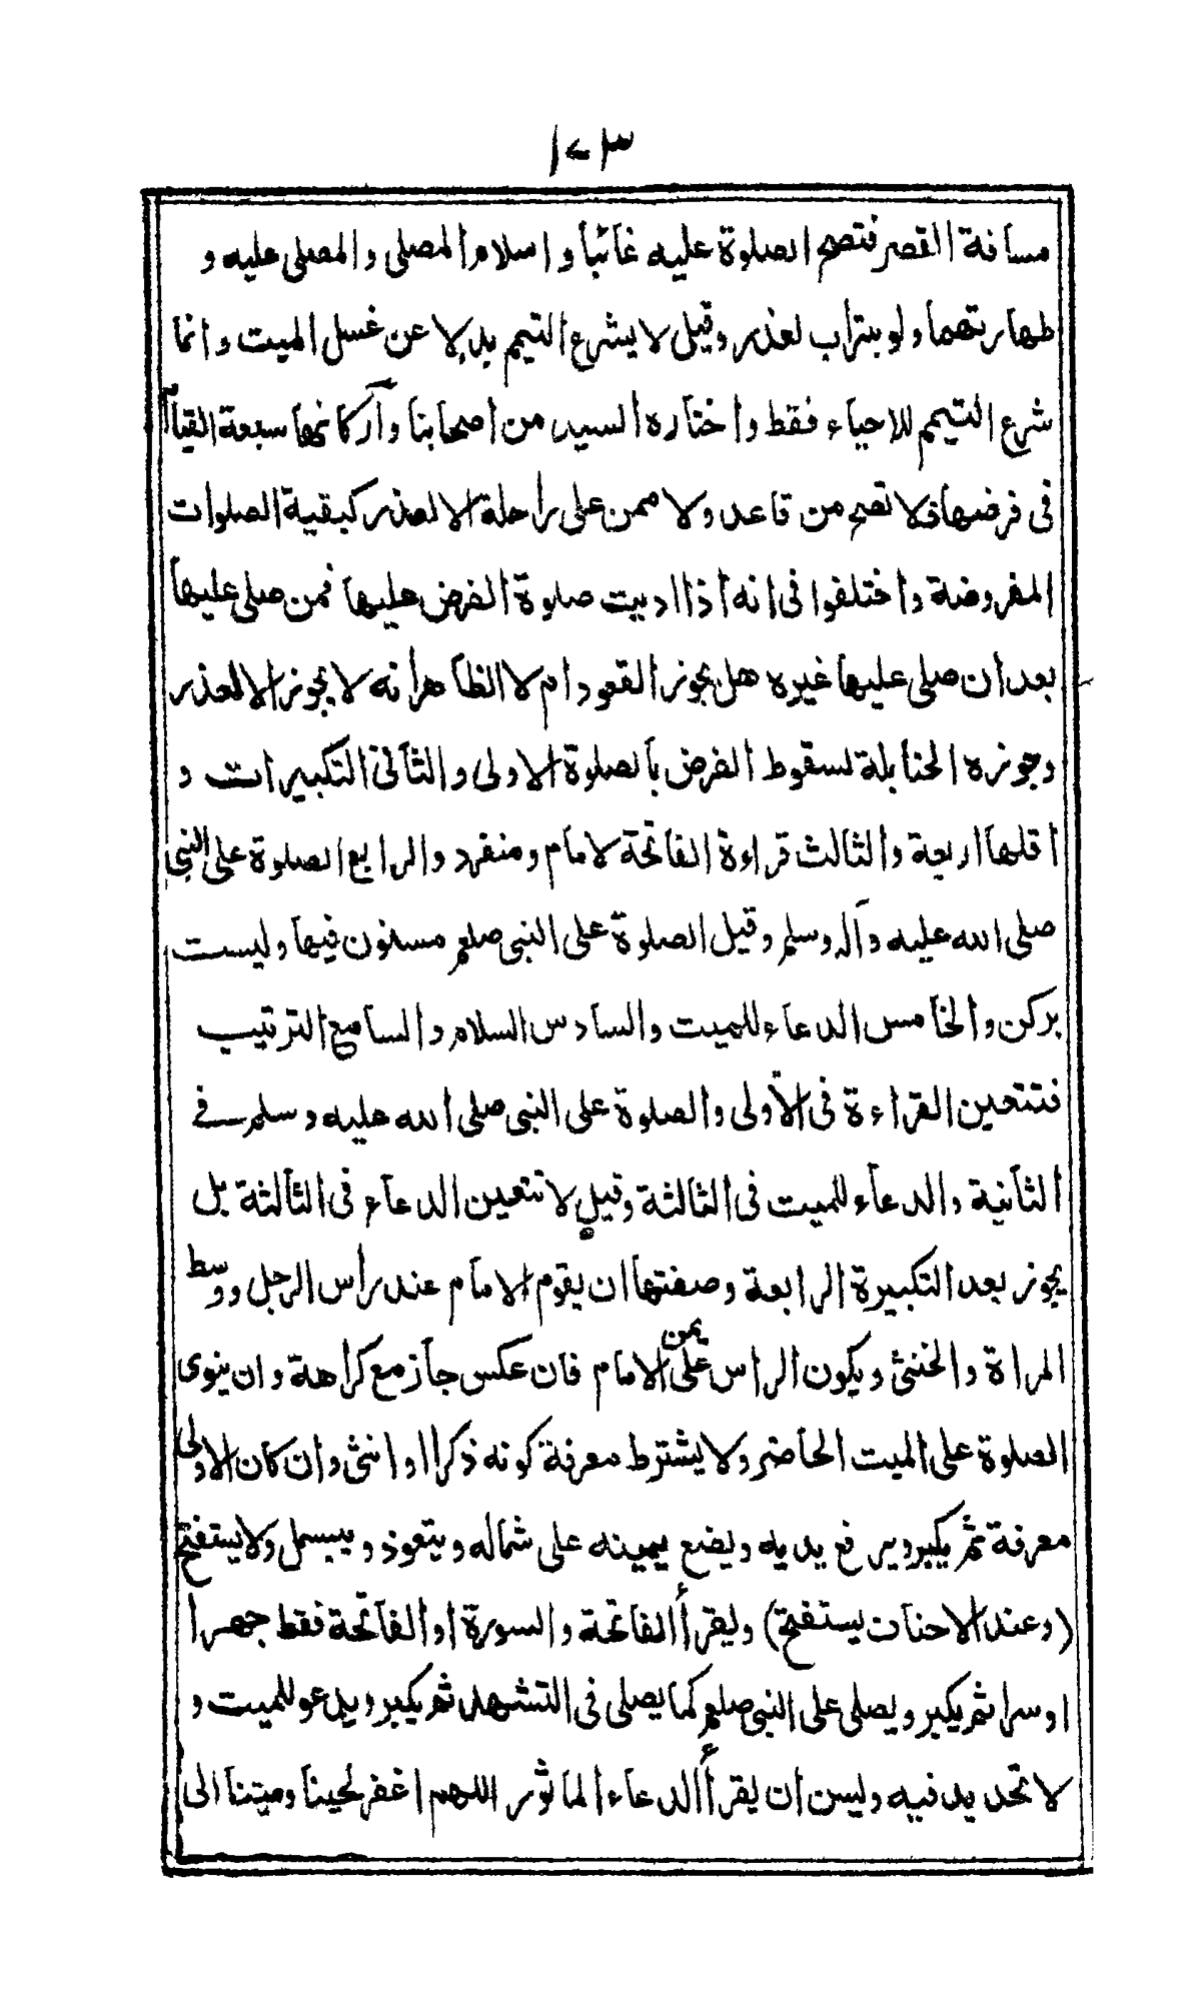 ١٠٣
مسافة القصر فتصح الصلوة عليه غائبا و اسلام المصلى والمصلى عليه و
طهارتهما ولو بتراب لعذر وقيل لا يشرع التيمم بدلا عن غسل الميت وانما
شرع التيمم للاحياء فقط واختاره السيد من اصحابنا وأركانها سبعة القيام
فى فرضها فلا تصح من قاعد ولا ممن على راحلة الا لعذر كبقية الصلوات
المفروضة واختلفوا فى انه اذا اديت صلوة الفرض عليها فمن صلى عليها
بعد ان صلى عليها غيره هل يجوز القعود ام لا الظاهر انه لا يجوز الا لعذر
وجوزه الحنابلة لسقوط الفرض بالصلوة الاولى والثانى التكبيرات و
اقلها اربعة والثالث قراءة الفاتحة لامام ومنفرد والرابع الصلوة على النبى
صلى الله عليه وآله وسلم وقيل الصلوة على النبى صلعم مسنون فيها وليست
بركن والخامس الدعاء للميت والسادس السلام والسابع الترتيب
فتتعين القراءة فى الأولى والصلوة على النبى صلى الله عليه وسلم فے
الثانية والدعاء للميت فى الثالثة وقيل لا تتعين الدعاء فى الثالثة بل
يجوز بعد التكبيرة الرابعة وصفتها ان يقوم الامام عند راس الرجل ووسط
المراة والخنثى ويكون الراس على يمن الامام فان عكس جاز مع كراهة وان ينوى
الصلوة على الميت الحاضر ولا يشترط معرفة كونه ذكرا او انثى وان كان الاولى
معرفة ثم يكبر ويرفع يديه ويضع يمينه على شماله ويتعوذ ويبسمل ولا يستفتح
(وعند الاحناف يستفتح) وليقرأ الفاتحة والسورة او الفاتحة فقط جهرا
او سرا ثم يكبر ويصلى على النبى صلعم كما يصلى فى التشهد ثم يكبر ويدعو للميت و
لا تحديد فيه وليسن ان يقرأ الدعاء الماثور اللهم اغفر لحينا وميتنا الى